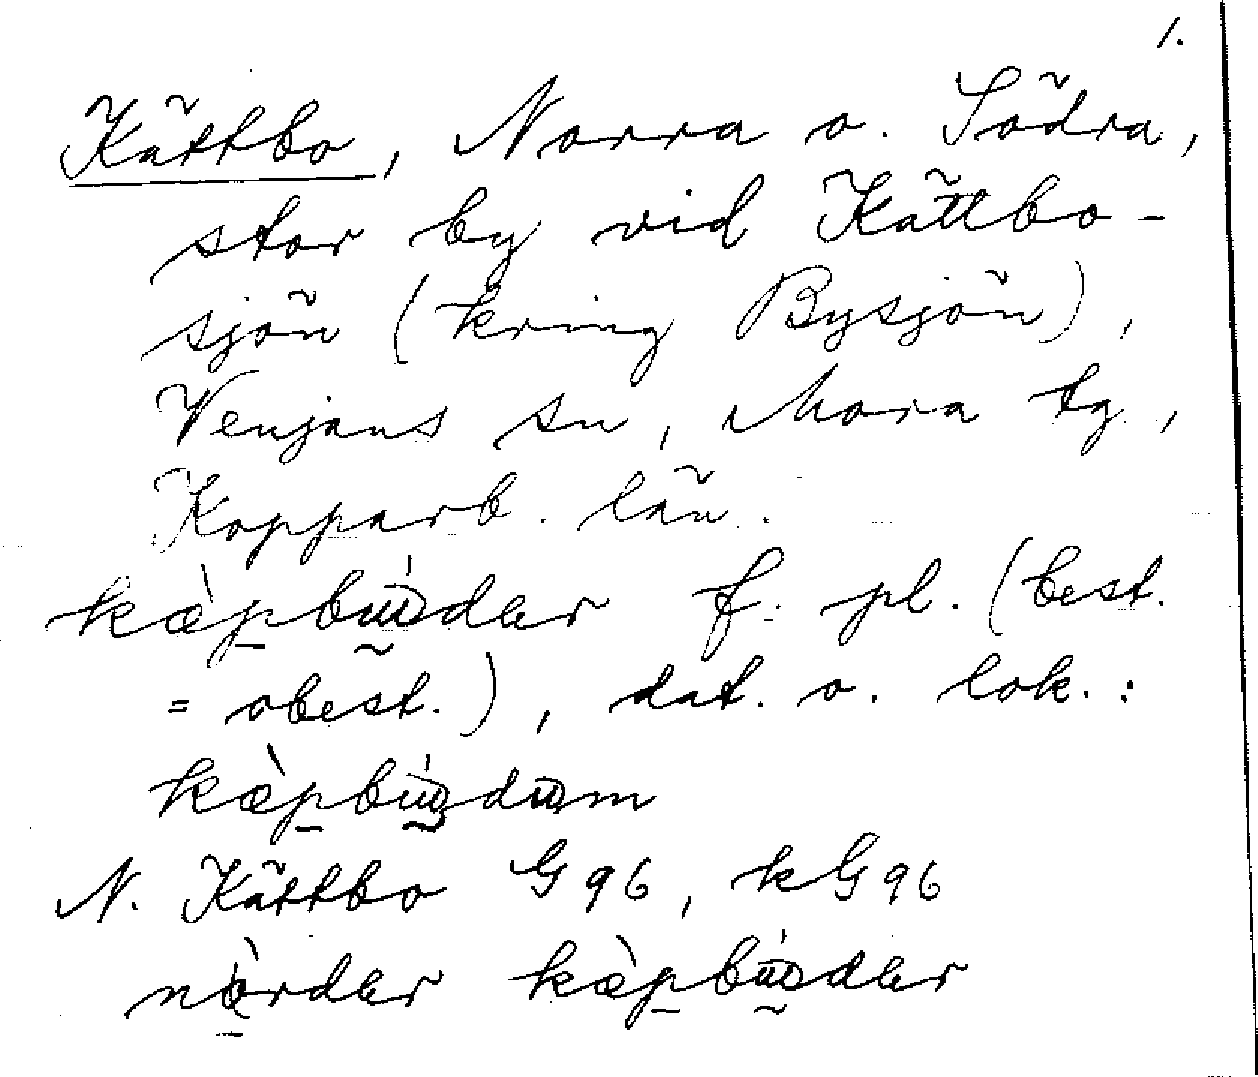 1.
Kättbo, Norra o. Södra,
stor by vid Kättbo-
sjön (kring Bysjön),
Venjans sn, Mora tg.,
Kopparb. län.
f. pl. (best.
= obest.), dat. o. lok.:
N. Kättbo G96, kG96